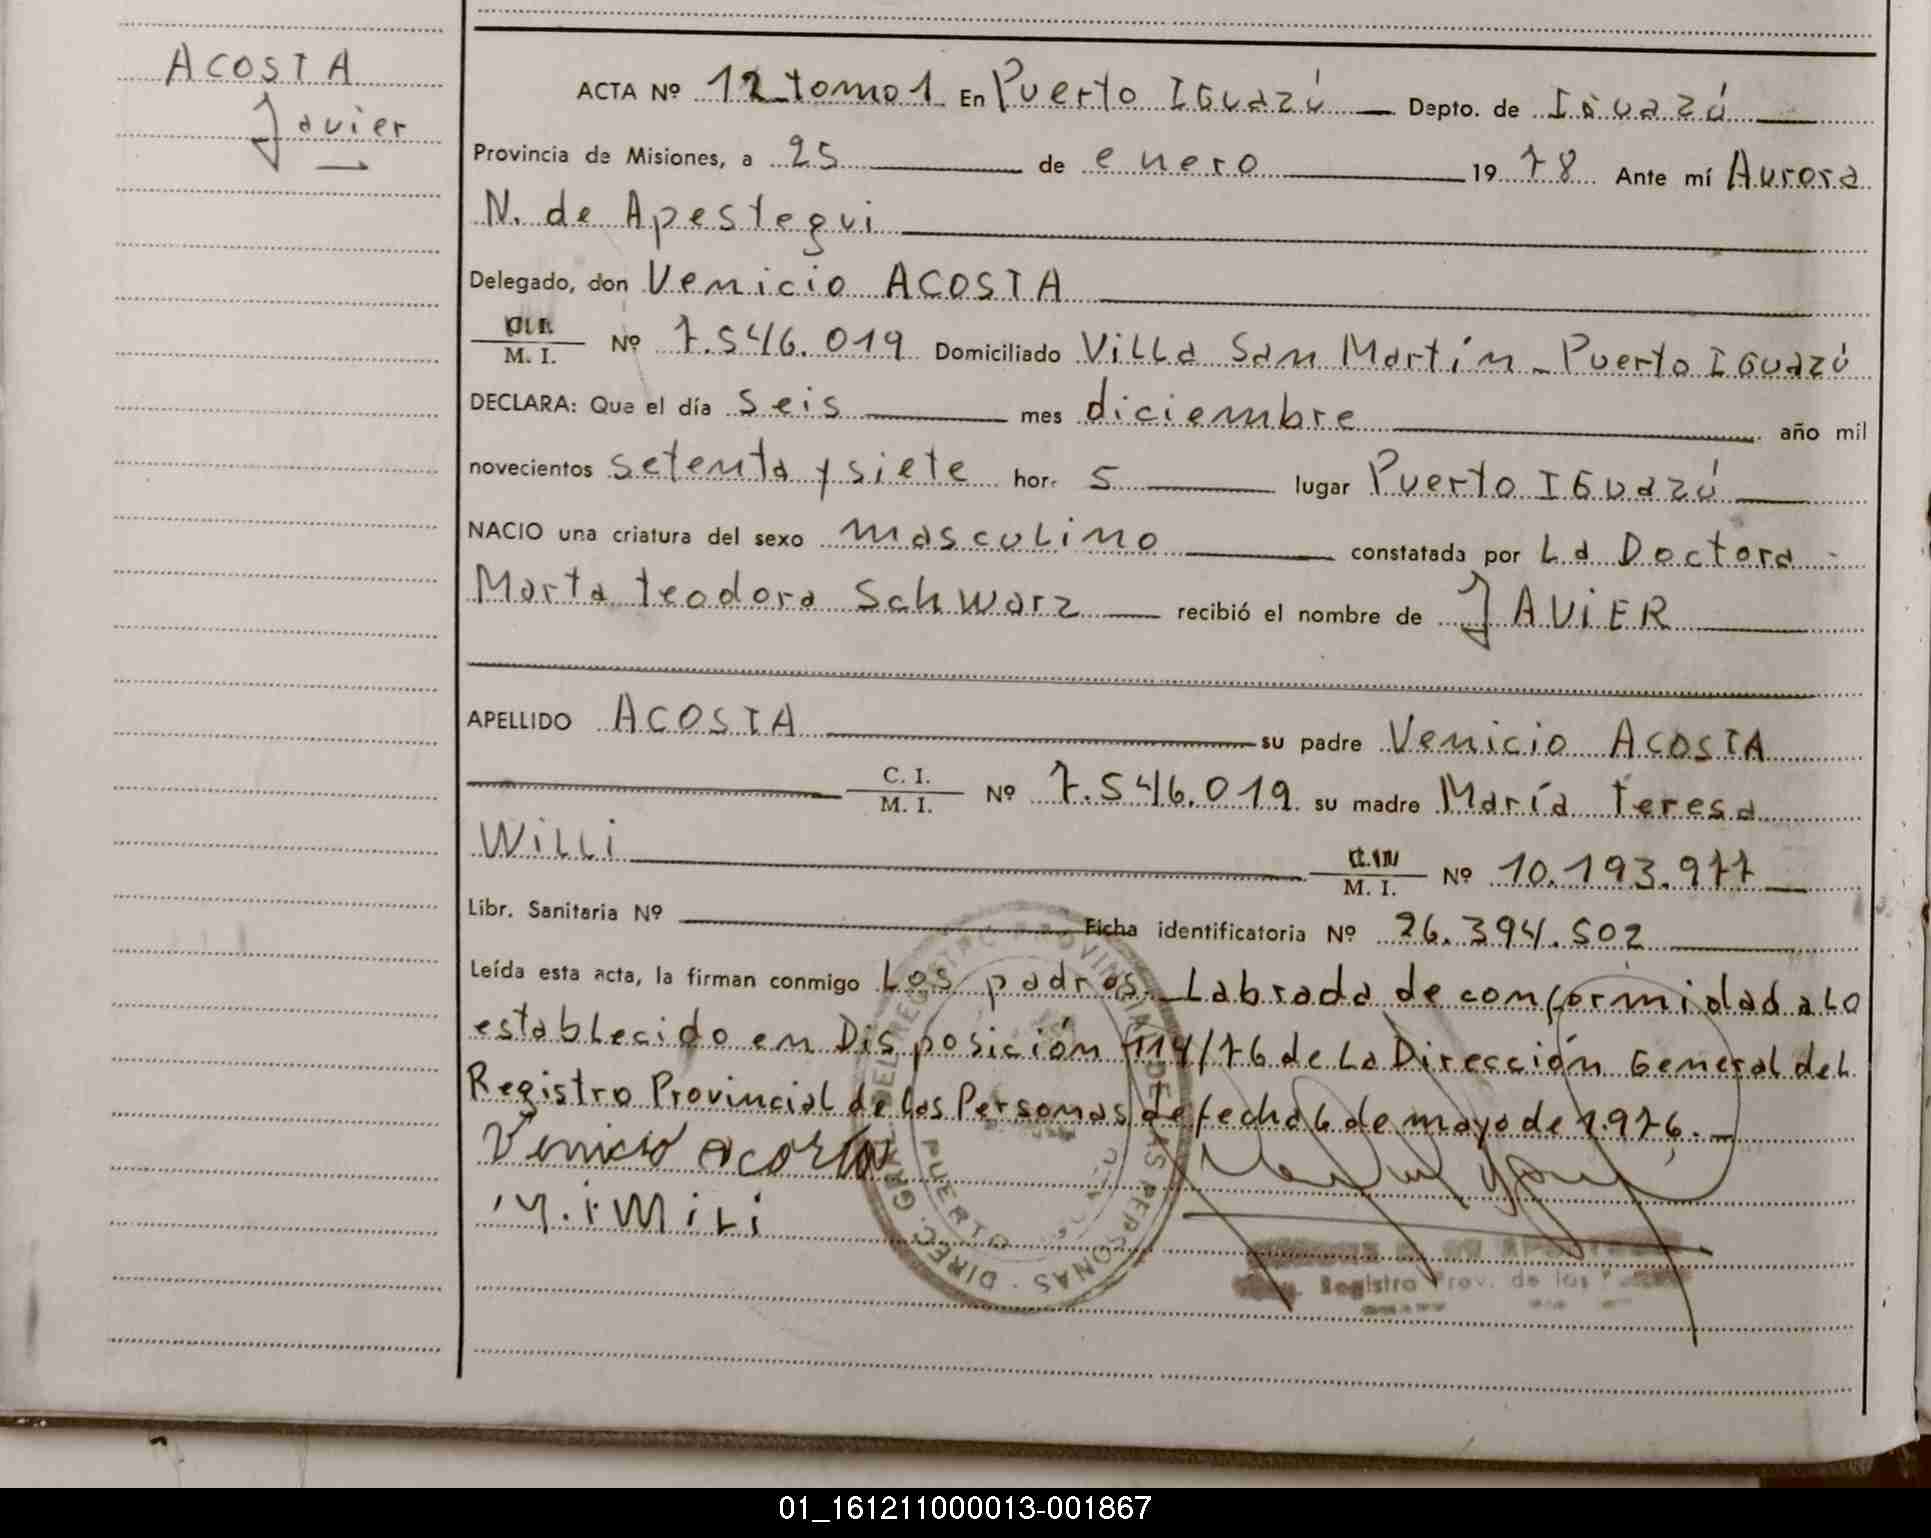 ACOSTA
Javier
ACTA Nº 12 tomo 1 En Puerto IGuazú Depto. de IGuazú
Provincia de Misiones, a 25 de enero 1978 Ante mí Aurora
N. de Apestegui
Delegado, don Venicio ACOSTA
M. I. Nº 7.546.019 Domiciliado Villa San Martín - Puerto IGuazú
DECLARA: Que el día seis mes diciembre año mil
novecientos setenta y siete hor. 5 lugar Puerto IGuazú
NACIO una criatura del sexo masculino constatada por La Doctora
Marta teodora Schwarz recibió el nombre de JAViER
APELLIDO ACOSTA su padre Venicio ACOSTA
C. I.
M. I. Nº 7.546.019 su madre María teresa
Willi M. I. Nº 10.193.977
Libr. Sanitaria Nº Ficha identificatoria Nº 26.394.502
Leída esta acta, la firman conmigo Los padres. Labrada de conformidad a lo
establecido en Disposición 114/76 de La Dirección General del
Registro Provincial de las Personas de fecha 6 de mayo de 1.976.
Venicio acosta
PROVINCIAL DE LAS PERSONAS - DIREC. GRAL. DEL REGISTRO
PUERTO
Registro Prov. de las
01_161211000013-001867